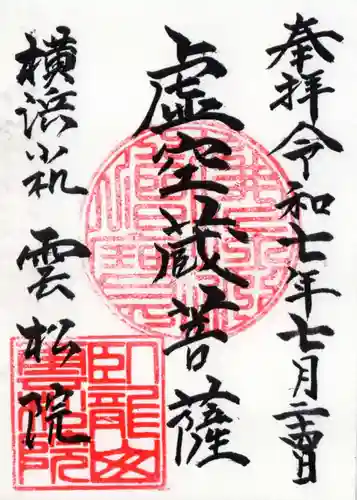 奉拝令和七年七月二十四日
虚空蔵菩薩
横浜小机 雲松院
臥龍山
雲松院